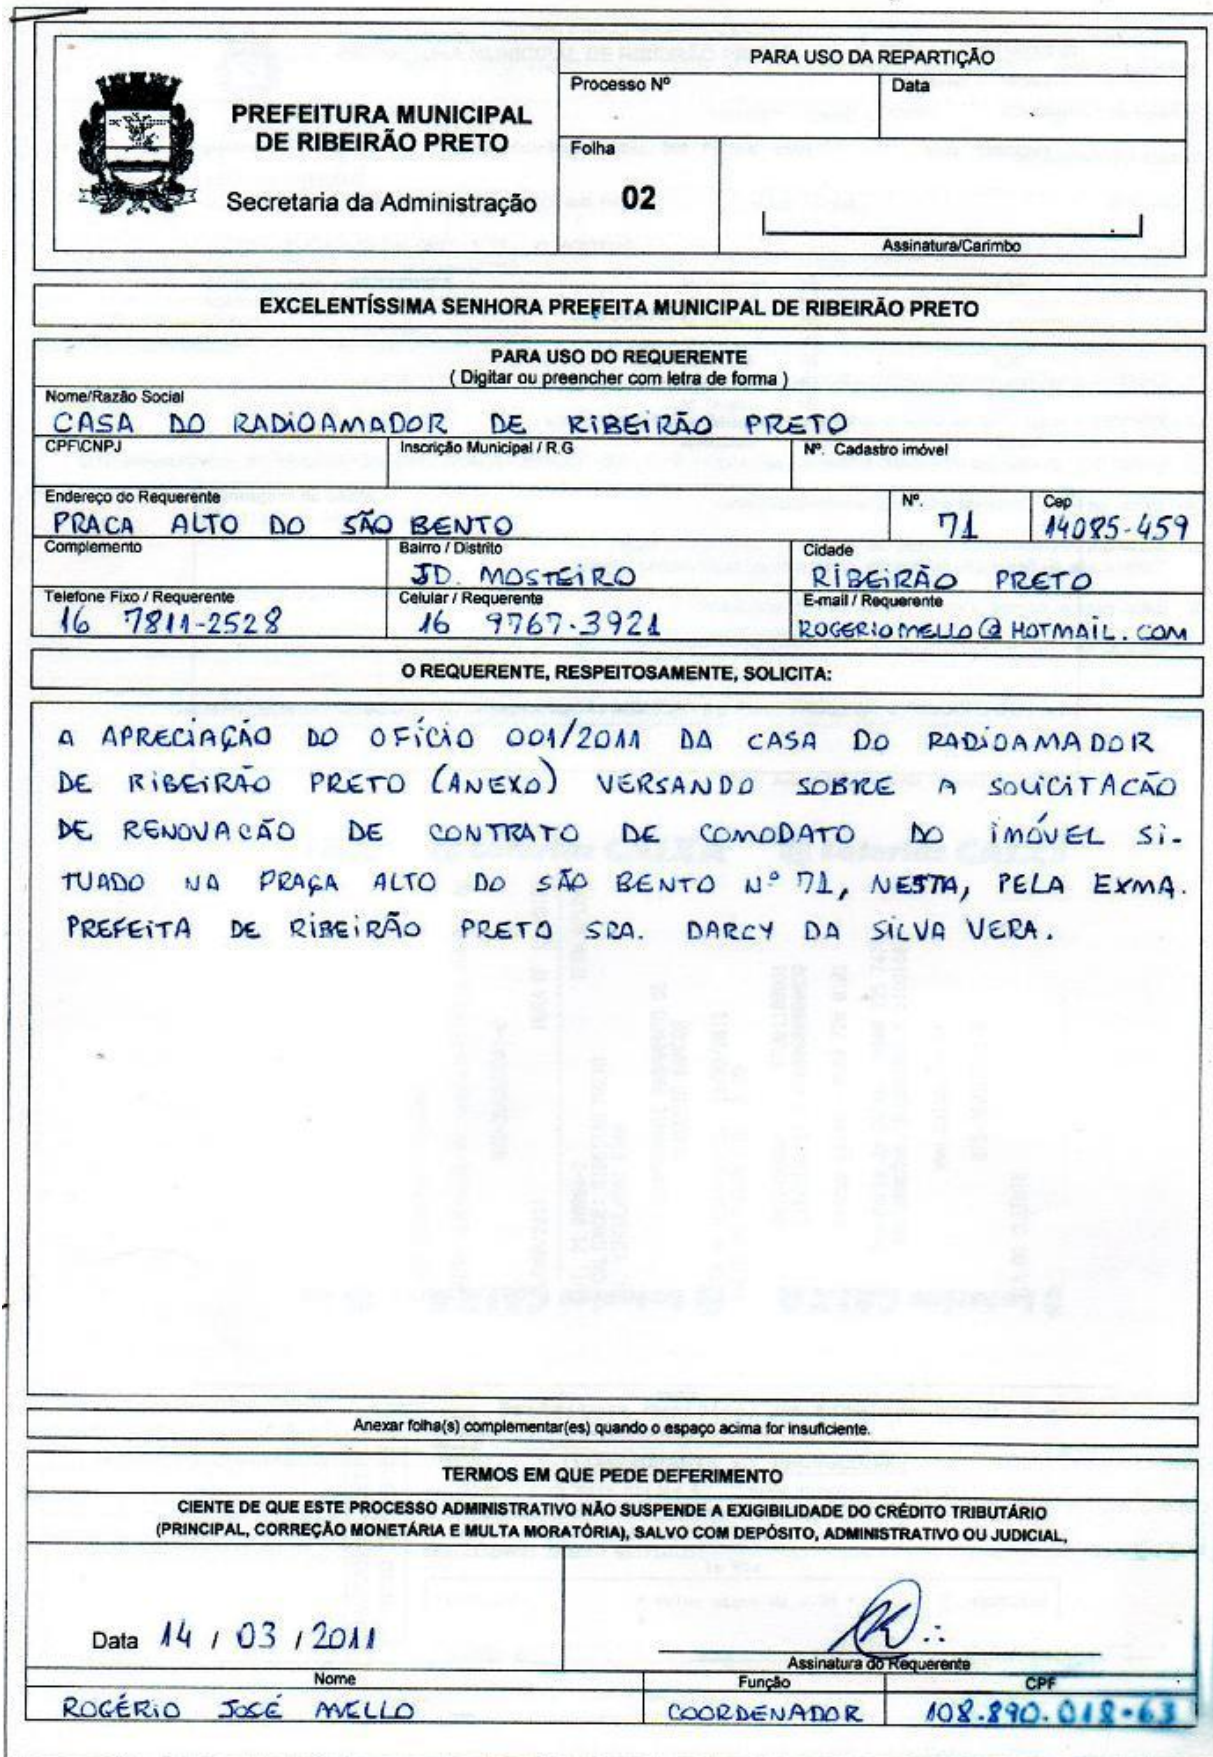 PREFEITURA MUNICIPAL
DE RIBEIRÃO PRETO
Secretaria da Administração
PARA USO DA REPARTIÇÃO
Processo Nº
Data
Folha
02
Assinatura/Carimbo
EXCELENTÍSSIMA SENHORA PREFEITA MUNICIPAL DE RIBEIRÃO PRETO
PARA USO DO REQUERENTE
( Digitar ou preencher com letra de forma )
Nome/Razão Social
CASA DO RADIOAMADOR DE RIBEIRÃO PRETO
CPF\CNPJ
Inscrição Municipal / R.G
Nº. Cadastro imóvel
Endereço do Requerente
PRACA ALTO DO SÃO BENTO
Nº.
71
Cep
14085-459
Complemento
Bairro / Distrito
JD. MOSTEIRO
Cidade
RIBEIRÃO PRETO
Telefone Fixo / Requerente
16 7811-2528
Celular / Requerente
16 9767-3921
E-mail / Requerente
ROGERIOMELLO@HOTMAIL.COM
O REQUERENTE, RESPEITOSAMENTE, SOLICITA:
A APRECIAÇÃO DO OFÍCIO 001/2011 DA CASA DO RADIOAMADOR
DE RIBEIRÃO PRETO (ANEXO) VERSANDO SOBRE A SOLICITACÃO
DE RENOVACÃO DE CONTRATO DE COMODATO DO IMÓVEL SI-
TUADO NA PRAÇA ALTO DO SÃO BENTO Nº 71, NESTA, PELA EXMA.
PREFEITA DE RIBEIRÃO PRETO SRA. DARCY DA SILVA VERA.
Anexar folha(s) complementar(es) quando o espaço acima for insuficiente.
TERMOS EM QUE PEDE DEFERIMENTO
CIENTE DE QUE ESTE PROCESSO ADMINISTRATIVO NÃO SUSPENDE A EXIGIBILIDADE DO CRÉDITO TRIBUTÁRIO
(PRINCIPAL, CORREÇÃO MONETÁRIA E MULTA MORATÓRIA), SALVO COM DEPÓSITO, ADMINISTRATIVO OU JUDICIAL,
Data 14 / 03 / 2011
Assinatura do Requerente
Nome
ROGÉRIO JOSÉ MELLO
Função
COORDENADOR
CPF
108.890.018-63